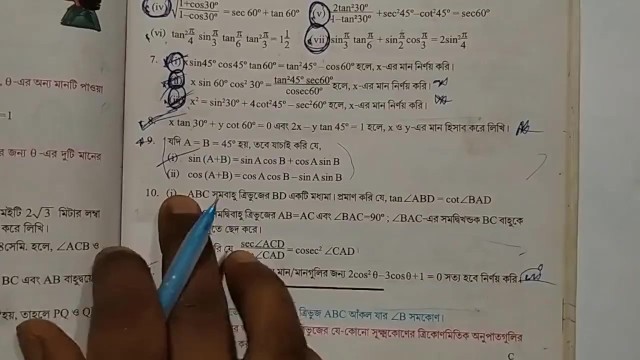 (iv) √1+cos30°/1−cos30° = sec 60° + tan 60°
(v) 2tan²30°/1−tan²30° + sec²45° − cot²45° = sec60°
(vi) tan²π/4 sinπ/3 tanπ/6 tan²π/3 = 1 1/2
(vii) sinπ/3 tanπ/6 + sinπ/2 cosπ/3 = 2sin²π/4
7. (i) x sin45° cos45° tan60° = tan²45° − cos60° হলে, x-এর মান নির্ণয় করি।
x sin 60° cos² 30° = tan²45° sec60°/cosec60° হলে, x-এর মান নির্ণয় করি।
x² = sin²30° + 4cot²45° − sec²60° হলে, x-এর মান নির্ণয় করি।
8. x tan 30° + y cot 60° = 0 এবং 2x − y tan 45° = 1 হলে, x ও y-এর মান হিসাব করে লিখি।
9. যদি A = B = 45° হয়, তবে যাচাই করি যে,
(i) sin (A+B) = sin A cos B + cos A sin B
(ii) cos (A+B) = cos A cos B − sin A sin B
10. (i) ABC সমবাহু ত্রিভুজের BD একটি মধ্যমা। প্রমাণ করি যে, tan∠ABD = cot∠BAD
সমদ্বিবাহু ত্রিভুজের AB=AC এবং ∠BAC=90°; ∠BAC-এর সমদ্বিখন্ডক BC বাহুকে
ছেদ করে।
sec∠ACD/∠CAD = cosec² ∠CAD
মান/মানগুলির জন্য 2cos²θ−3cosθ+1 = 0 সত্য হবে নির্ণয় করি
ত্রিভুজ ABC আঁকল যার ∠B সমকোণ।
ত্রিভুজের যে-কোনো সূক্ষ্মকোণের ত্রিকোণমিতিক অনুপাতগুলির
, θ-এর অন্য মানটি পাওয়া
=1
র জন্য θ-এর দুটি মানের
মইটি 2√3 মিটার লম্বা
করে লিখি।
সেমি. হলে, ∠ACB ও
BC এবং AB বাহুদ্বয়ে
হয়, তাহলে PQ ও
C